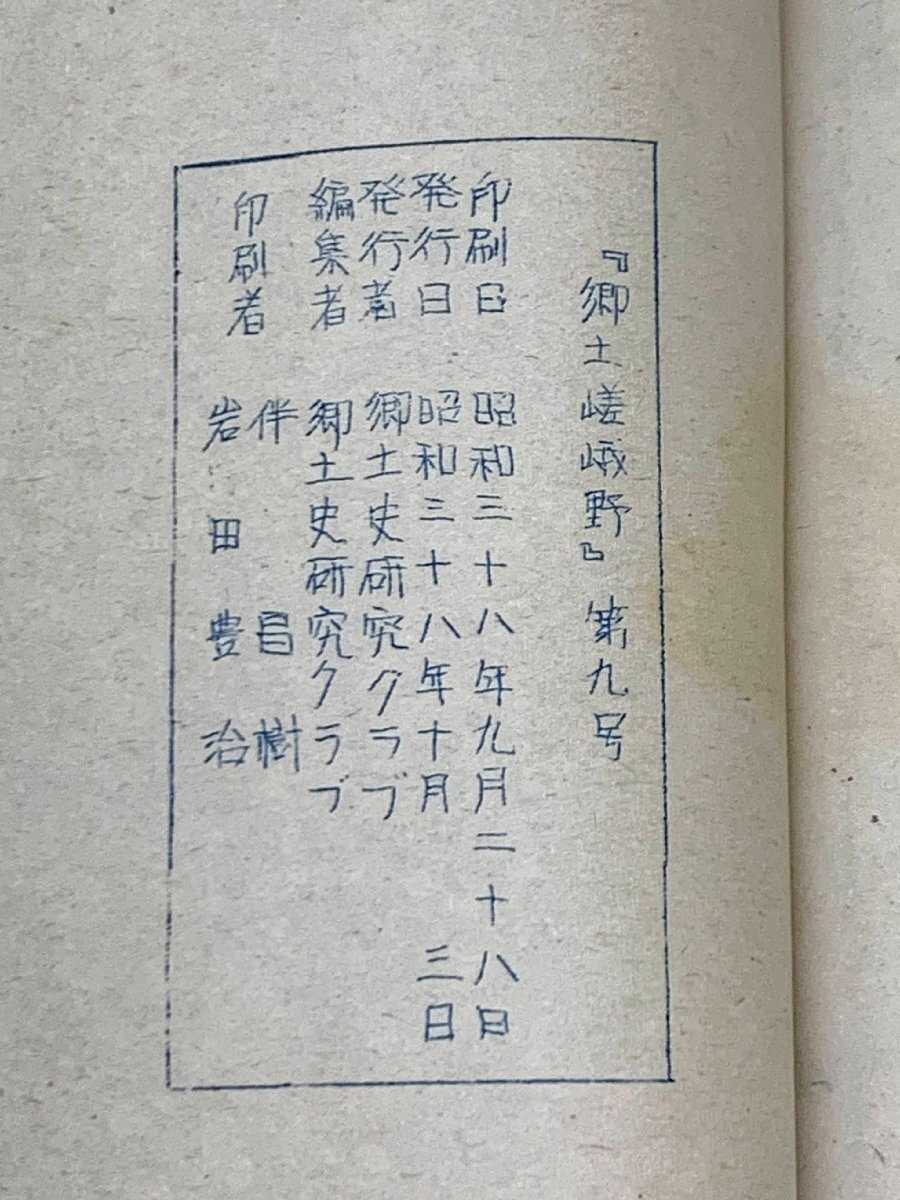 『郷土嵯峨野』第九号
印刷日 昭和三十八年九月二十八日
発行日 昭和三十八年十月 三日
発行者 郷土史研究クラブ
編集者 郷土史研究クラブ
印刷者 伴 昌樹
岩田豊治